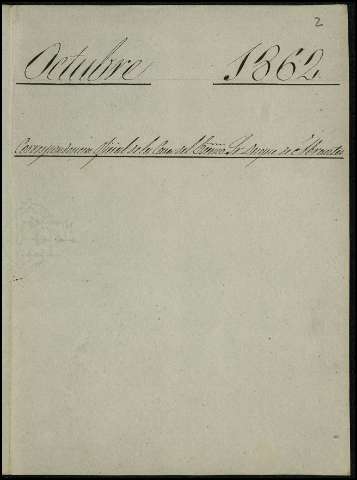 2
Octubre 1862
Correspondencia Oficial de la Casa del Excmo. Sr. Duque de Abrantes